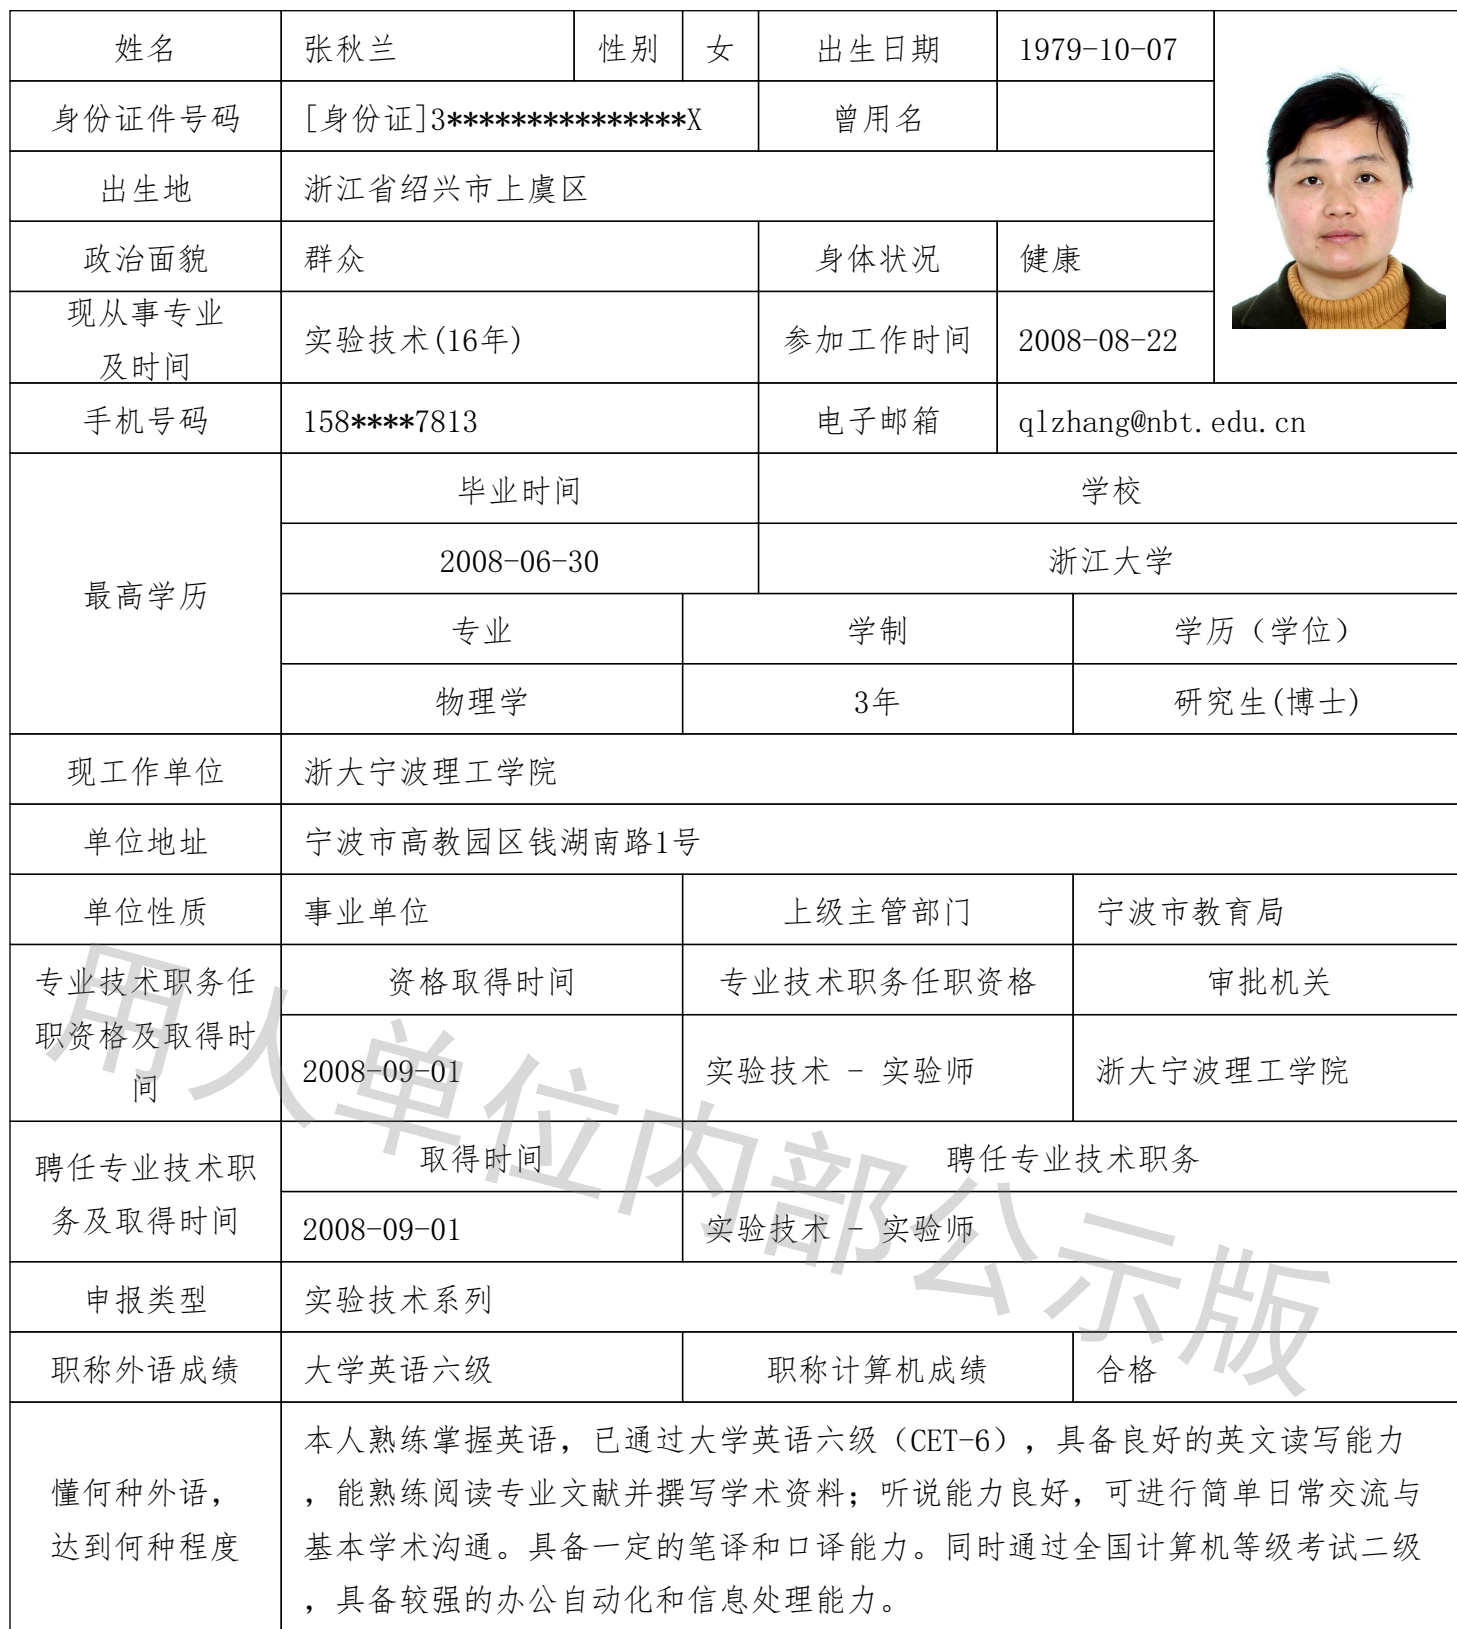 姓名 张秋兰 性别 女 出生日期 1979-10-07
身份证件号码 [身份证]3***************X 曾用名
出生地 浙江省绍兴市上虞区
政治面貌 群众 身体状况 健康
现从事专业
及时间
实验技术(16年) 参加工作时间 2008-08-22
手机号码 158****7813 电子邮箱 qlzhang@nbt.edu.cn
最高学历
毕业时间 学校
2008-06-30 浙江大学
专业 学制 学历（学位）
物理学 3年 研究生(博士)
现工作单位 浙大宁波理工学院
单位地址 宁波市高教园区钱湖南路1号
单位性质 事业单位 上级主管部门 宁波市教育局
专业技术职务任
职资格及取得时
间
资格取得时间 专业技术职务任职资格 审批机关
2008-09-01 实验技术 - 实验师 浙大宁波理工学院
聘任专业技术职
务及取得时间
取得时间 聘任专业技术职务
2008-09-01 实验技术 - 实验师
申报类型 实验技术系列
职称外语成绩 大学英语六级 职称计算机成绩 合格
懂何种外语，
达到何种程度
本人熟练掌握英语，已通过大学英语六级（CET-6），具备良好的英文读写能力
，能熟练阅读专业文献并撰写学术资料；听说能力良好，可进行简单日常交流与
基本学术沟通。具备一定的笔译和口译能力。同时通过全国计算机等级考试二级
，具备较强的办公自动化和信息处理能力。
用人单位内部公示版